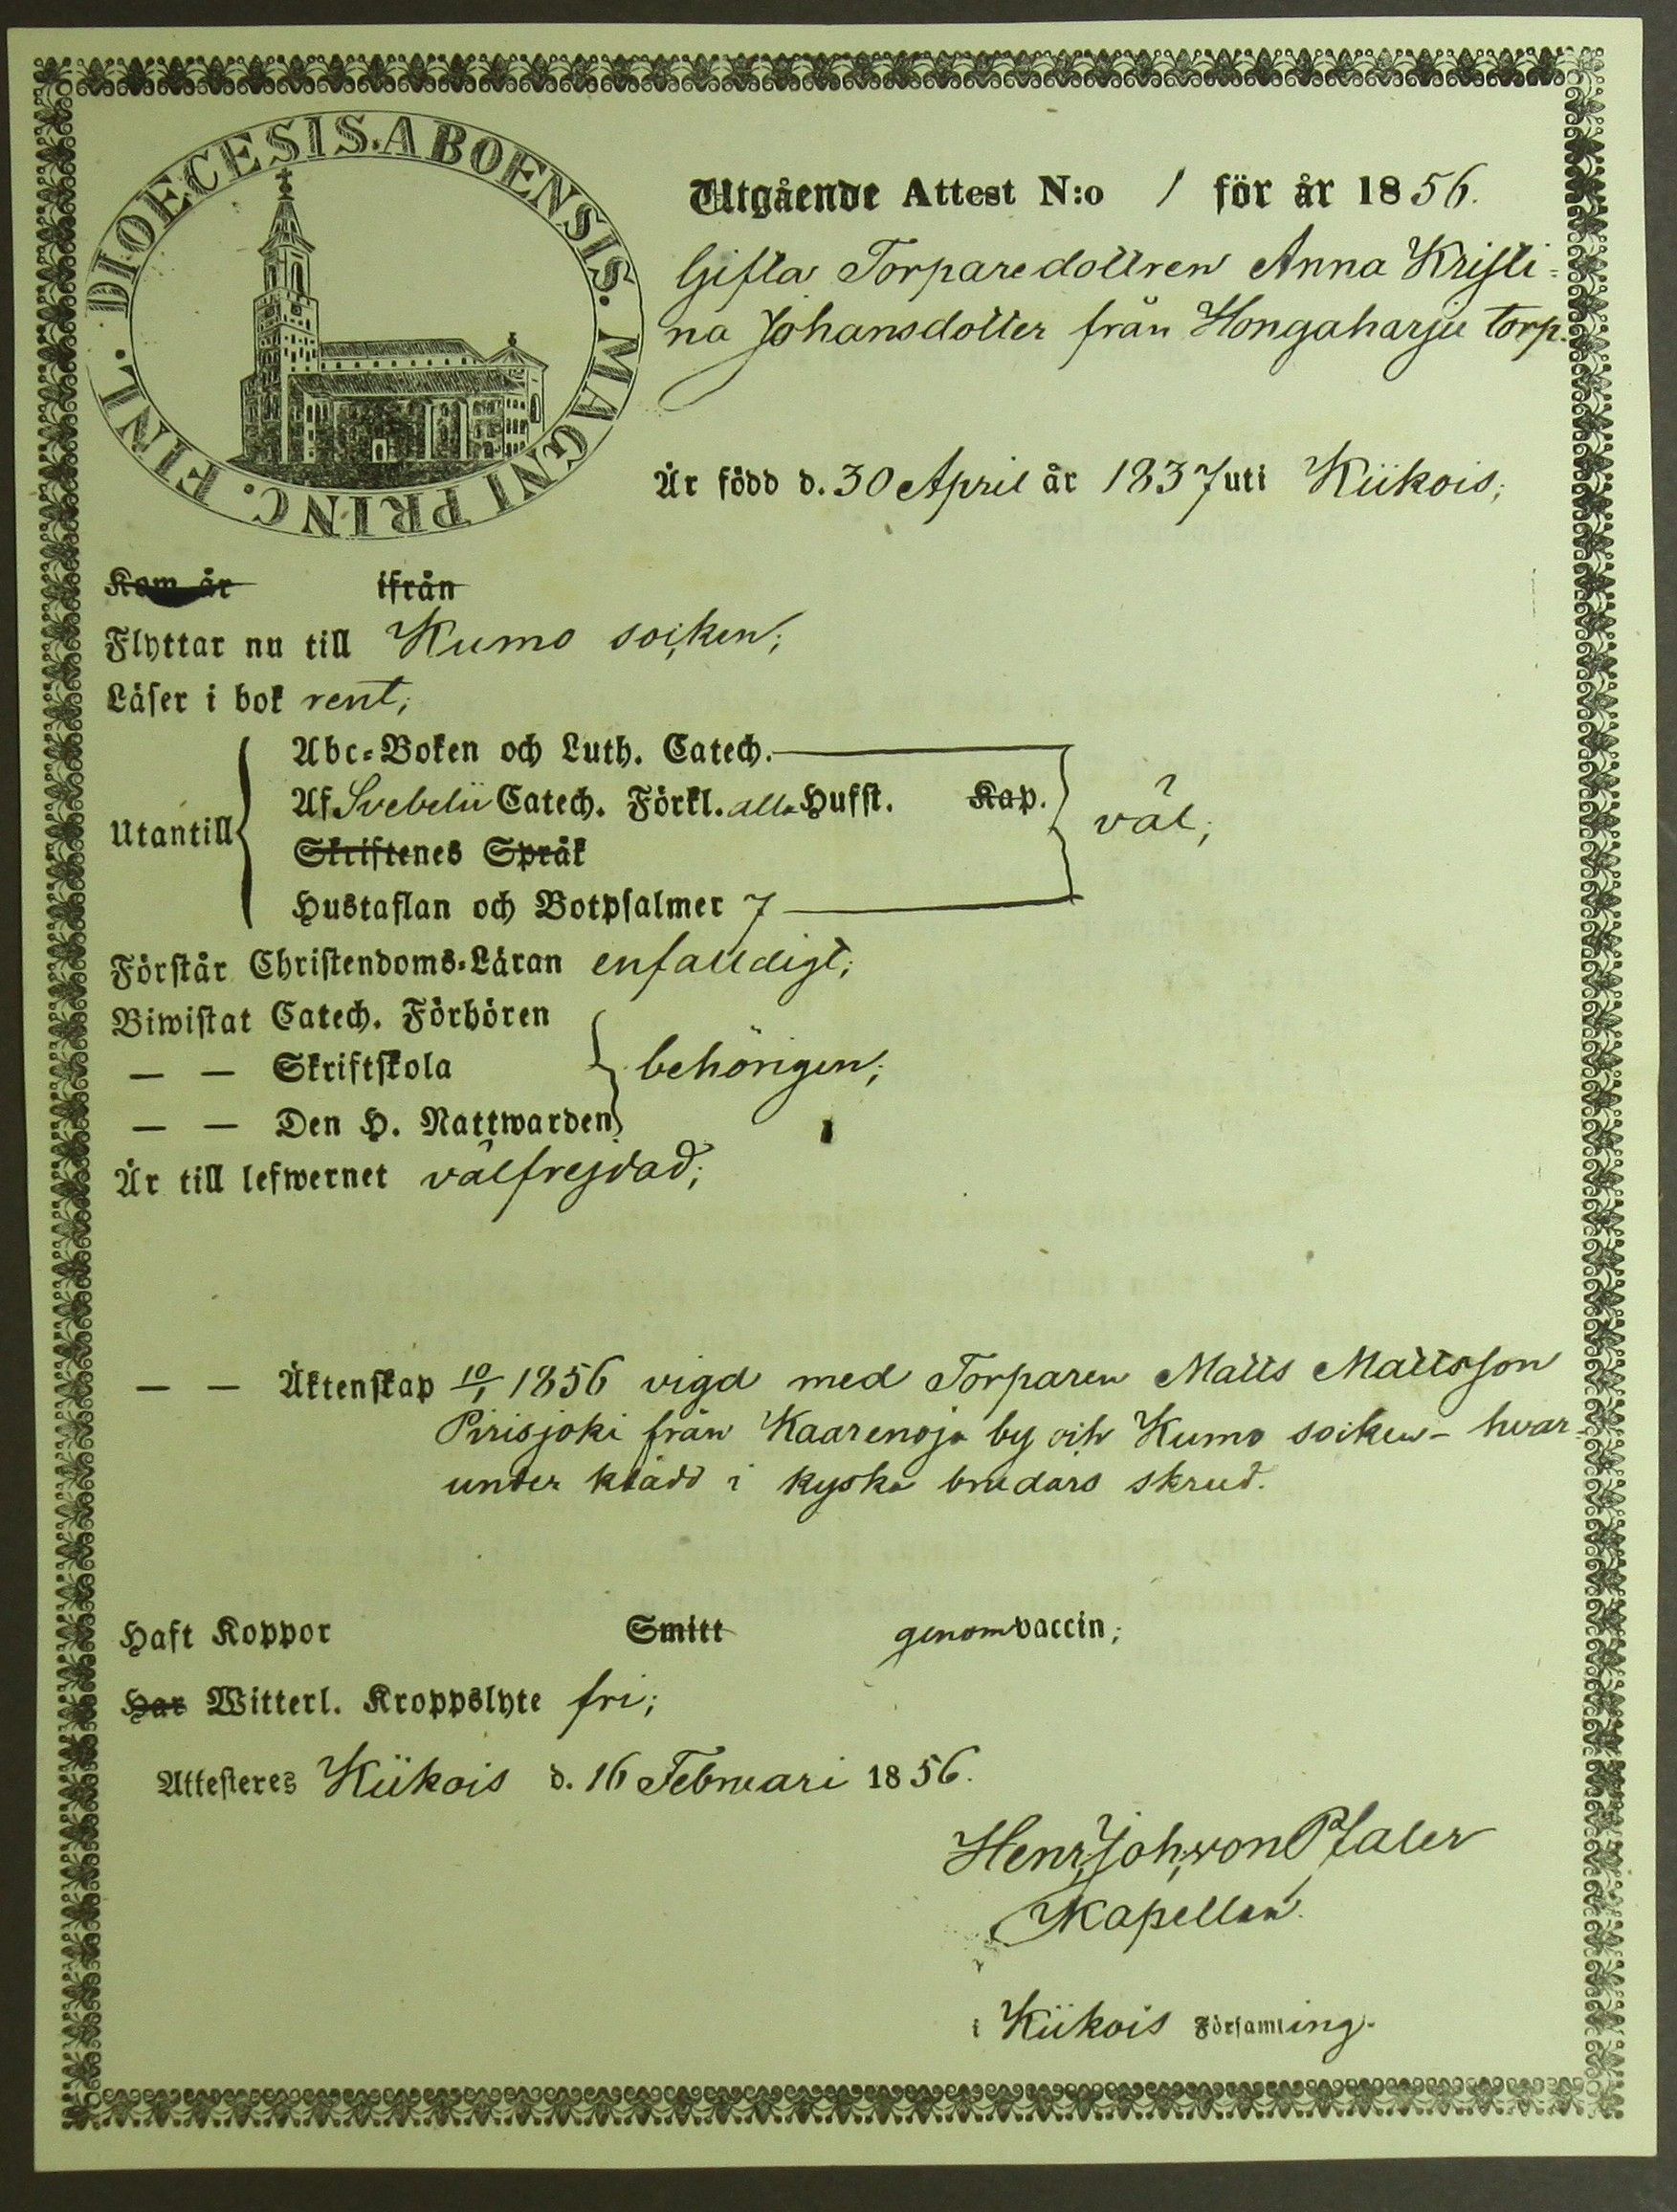 DIOECESIS. ABOENSIS. MAGNI PRINC. FINL.
Utgående Attest N:o 1 för år 1856.
Gifta Torparedottren Anna Kristi=
na Johansdotter från Hongaharju torp.
Är född d. 30 April år 1837 uti Kiikois;
Kom år ifrån
Flyttar nu till Kumo socken;
Läser i bok rent;
Abc=Boken och Luth. Catech.
Af Svebelii Catech. Förkl. alla Hufst. Kap.
Utantill väl;
Skriftenes Språk
Hustaflan och Botpsalmer 7
Förstår Christendoms=Läran enfaldigt;
Biwistat Catech. Förhören
— — Skriftskola behörigen;
— — Den H. Nattwarden
Är till lefwernet välfrejdad;
— — Äktenskap 10/1 1856 vigd med Torparen Matts Mattsson
Pirisjoki från Kaarenoja by och Kumo socken - hvar=
under klädd i kyska brudars skrud.
Haft Koppor Smitt genom vaccin;
Har Witterl. Kroppslyte fri;
Attesteres Kiikois d. 16 Februari 1856.
Henr. Joh. von Pfaler
Kapellan.
i Kiikois Församling.